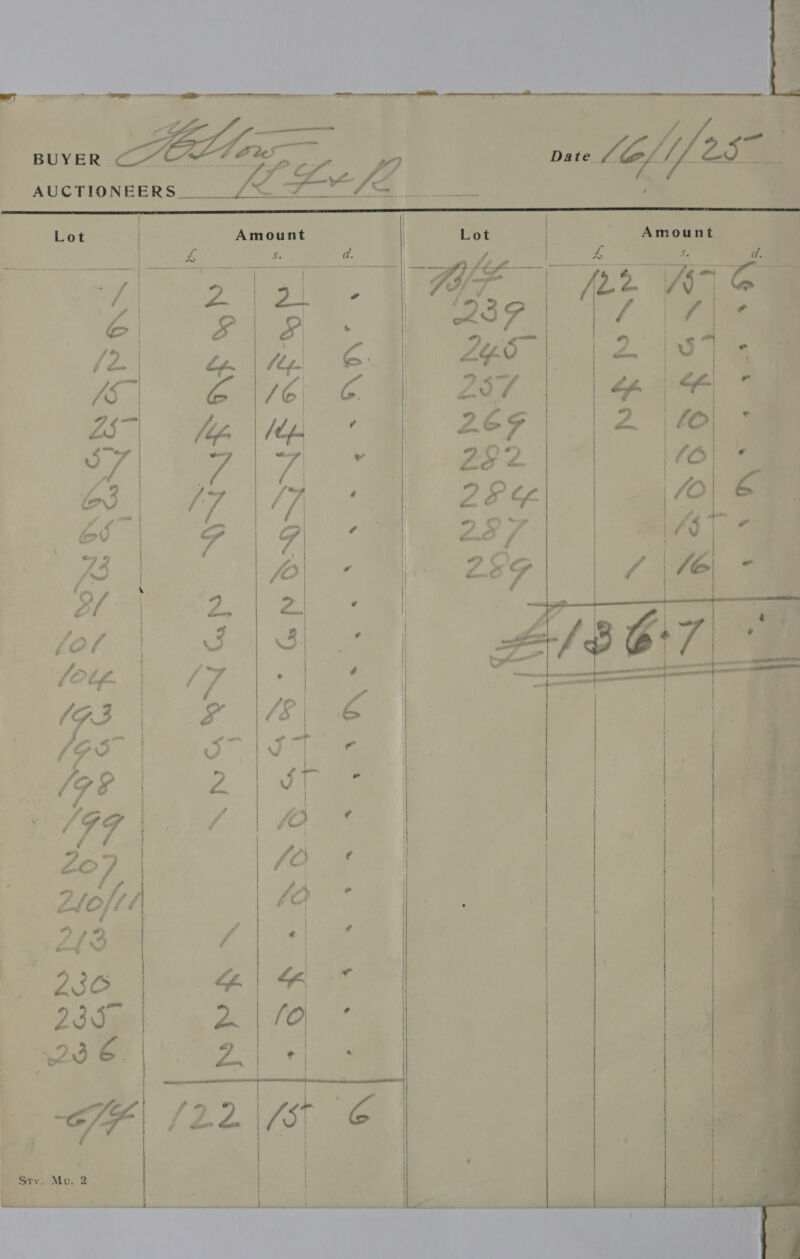 BUYER
Date 16/1/25
AUCTIONEERS
Lot Amount Lot Amount
£ s. d. £ s. d.
1 2 2 -
6 8 8 -
12 4 14 6
15 6 16 6
25 14 14 -
57 7 7 -
63 17 17 -
65 9 9 -
73 10 -
81 2 2 -
101 3 3 -
104 17 - -
193 8 18 6
195 5 5 -
198 2 5 -
199 1 10 -
207 10 -
210/11 10 -
213 1 - -
230 4 4 -
235 2 10 -
236 2 - -
C/F 122 15 6
B/F 122 15 6
239 1 1 -
245 2 5 -
257 4 4 -
269 2 10 -
282 10 -
284 10 6
287 15 -
289 1 16 -
£136.7 -
Stv. Mu. 2